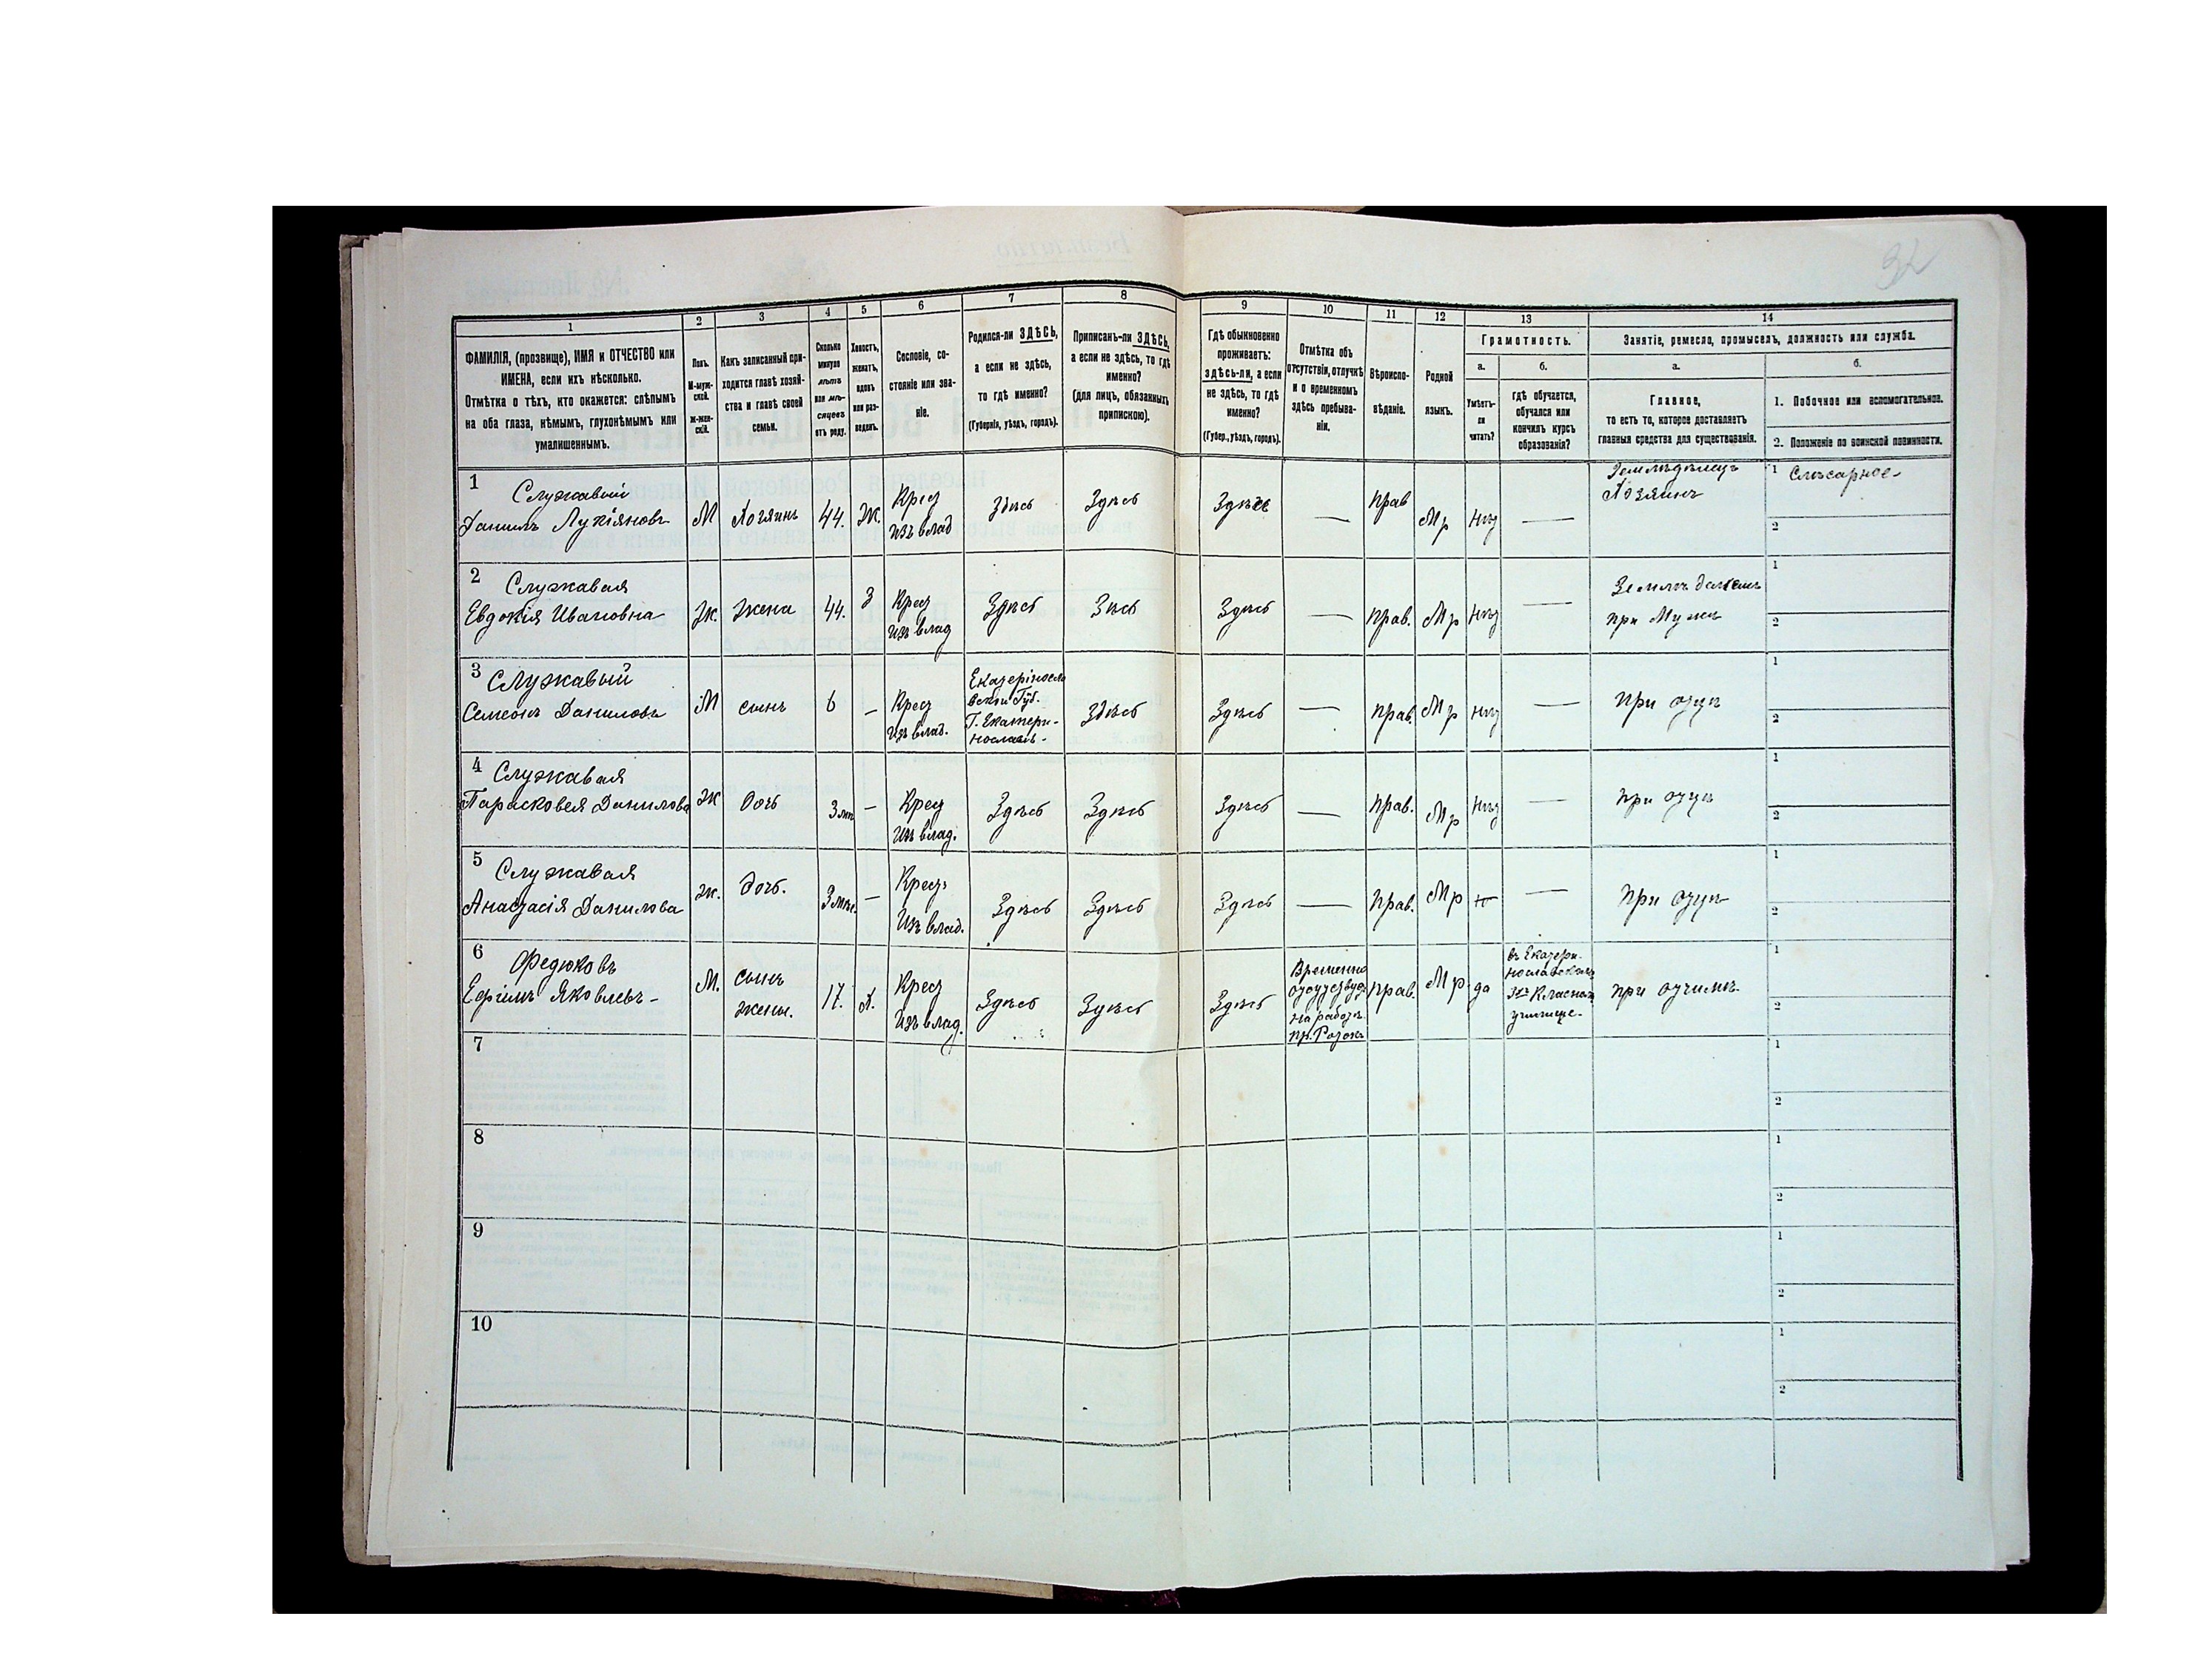 32
1
2
3
4
5
6
7
8
9
10
11
12
13
14
ФАМИЛІЯ, (прозвище), ИМЯ и ОТЧЕСТВО или
ИМЕНА, если ихъ нѣсколько.
Отмѣтка о тѣхъ, кто окажется: слѣпымъ
на оба глаза, нѣмымъ, глухонѣмымъ или
умалишеннымъ.
Полъ.
М-муж-
ской.
Ж-жен-
скій.
Какъ записанный при-
ходится главѣ хозяй-
ства и главѣ своей
семьи.
Сколько
минуло
лѣтъ
или мѣ-
сяцевъ
отъ роду.
Холостъ,
женатъ,
вдовъ
или раз-
веденъ.
Сословіе, со-
стояніе или зва-
ніе.
Родился-ли ЗДѢСЬ,
а если не здѣсь,
то гдѣ именно?
(Губернія, уѣздъ, городъ).
Приписанъ-ли ЗДѢСЬ,
а если не здѣсь, то гдѣ
именно?
(для лицъ, обязанныхъ
припискою).
Гдѣ обыкновенно
проживаетъ:
здѣсь-ли, а если
не здѣсь, то гдѣ
именно?
(Губер., уѣздъ, городъ).
Отмѣтка объ
отсутствіи, отлучкѣ
и о временномъ
здѣсь пребыва-
ніи.
Вѣроиспо-
вѣданіе.
Родной
языкъ.
Грамотность.
а.
Умѣетъ-
ли
читать?
б.
гдѣ обучается,
обучался или
кончилъ курсъ
образованія?
Занятіе, ремесло, промыселъ, должность или служба.
а.
Главное,
то есть то, которое доставляетъ
главныя средства для существованія.
б.
1. Побочное или вспомогательное.
2. Положеніе по воинской повинности.
1
Служавый
Данилъ Лукіяновъ
М
Хозяинъ
44.
Ж.
Крест
изъ влад
Здѣсь
Здѣсь
Здѣсь
—
Прав
Мр
нѣт
—
Земледѣлецъ
Хозяинъ
1 Слѣсарное-
2
2
Служавая
Евдокія Ивановна
Ж.
Жена
44.
З
Крест
Изъ влад
Здѣсь
Зѣсь
Здѣсь
—
Прав.
Мр
нѣт
—
при Мужѣ
1
2
3
Служавый
Семенъ Даниловъ
М
сынъ
6
—
Крест
Изъ влад.
Екатериносла
вской Губ.
Г. Екатери-
нославъ-
Здѣсь
Здѣсь
—
Прав
Мр
нѣт
—
При отцѣ
1
2
4
Служавая
Парасковея Данилова
Ж
Дочь
3 мѣс
—
Крест
Изъ влад.
Здѣсь
Здѣсь
Здѣсь
—
Прав.
Мр
нѣт
—
при отцѣ
1
2
5
Служавая
Анастасія Данилова
Ж.
Дочь.
3 мѣс.
—
Крест
Изъ влад.
Здѣсь
Здѣсь
Здѣсь
—
Прав.
Мр
н
—
При отцѣ
1
2
6
Федюковъ
Ефимъ Яковлевъ-
М.
сынъ
жены.
17.
Х.
Крест
Изъ влад.
Здѣсь
Здѣсь
Здѣсь
Временно
отсутствует
на работѣ
Прав.
Мр
да
въ Екатери-
нославскомъ
Класномъ
училище-
при отчимѣ
1
2
7
1
2
8
1
2
9
1
2
10
1
2